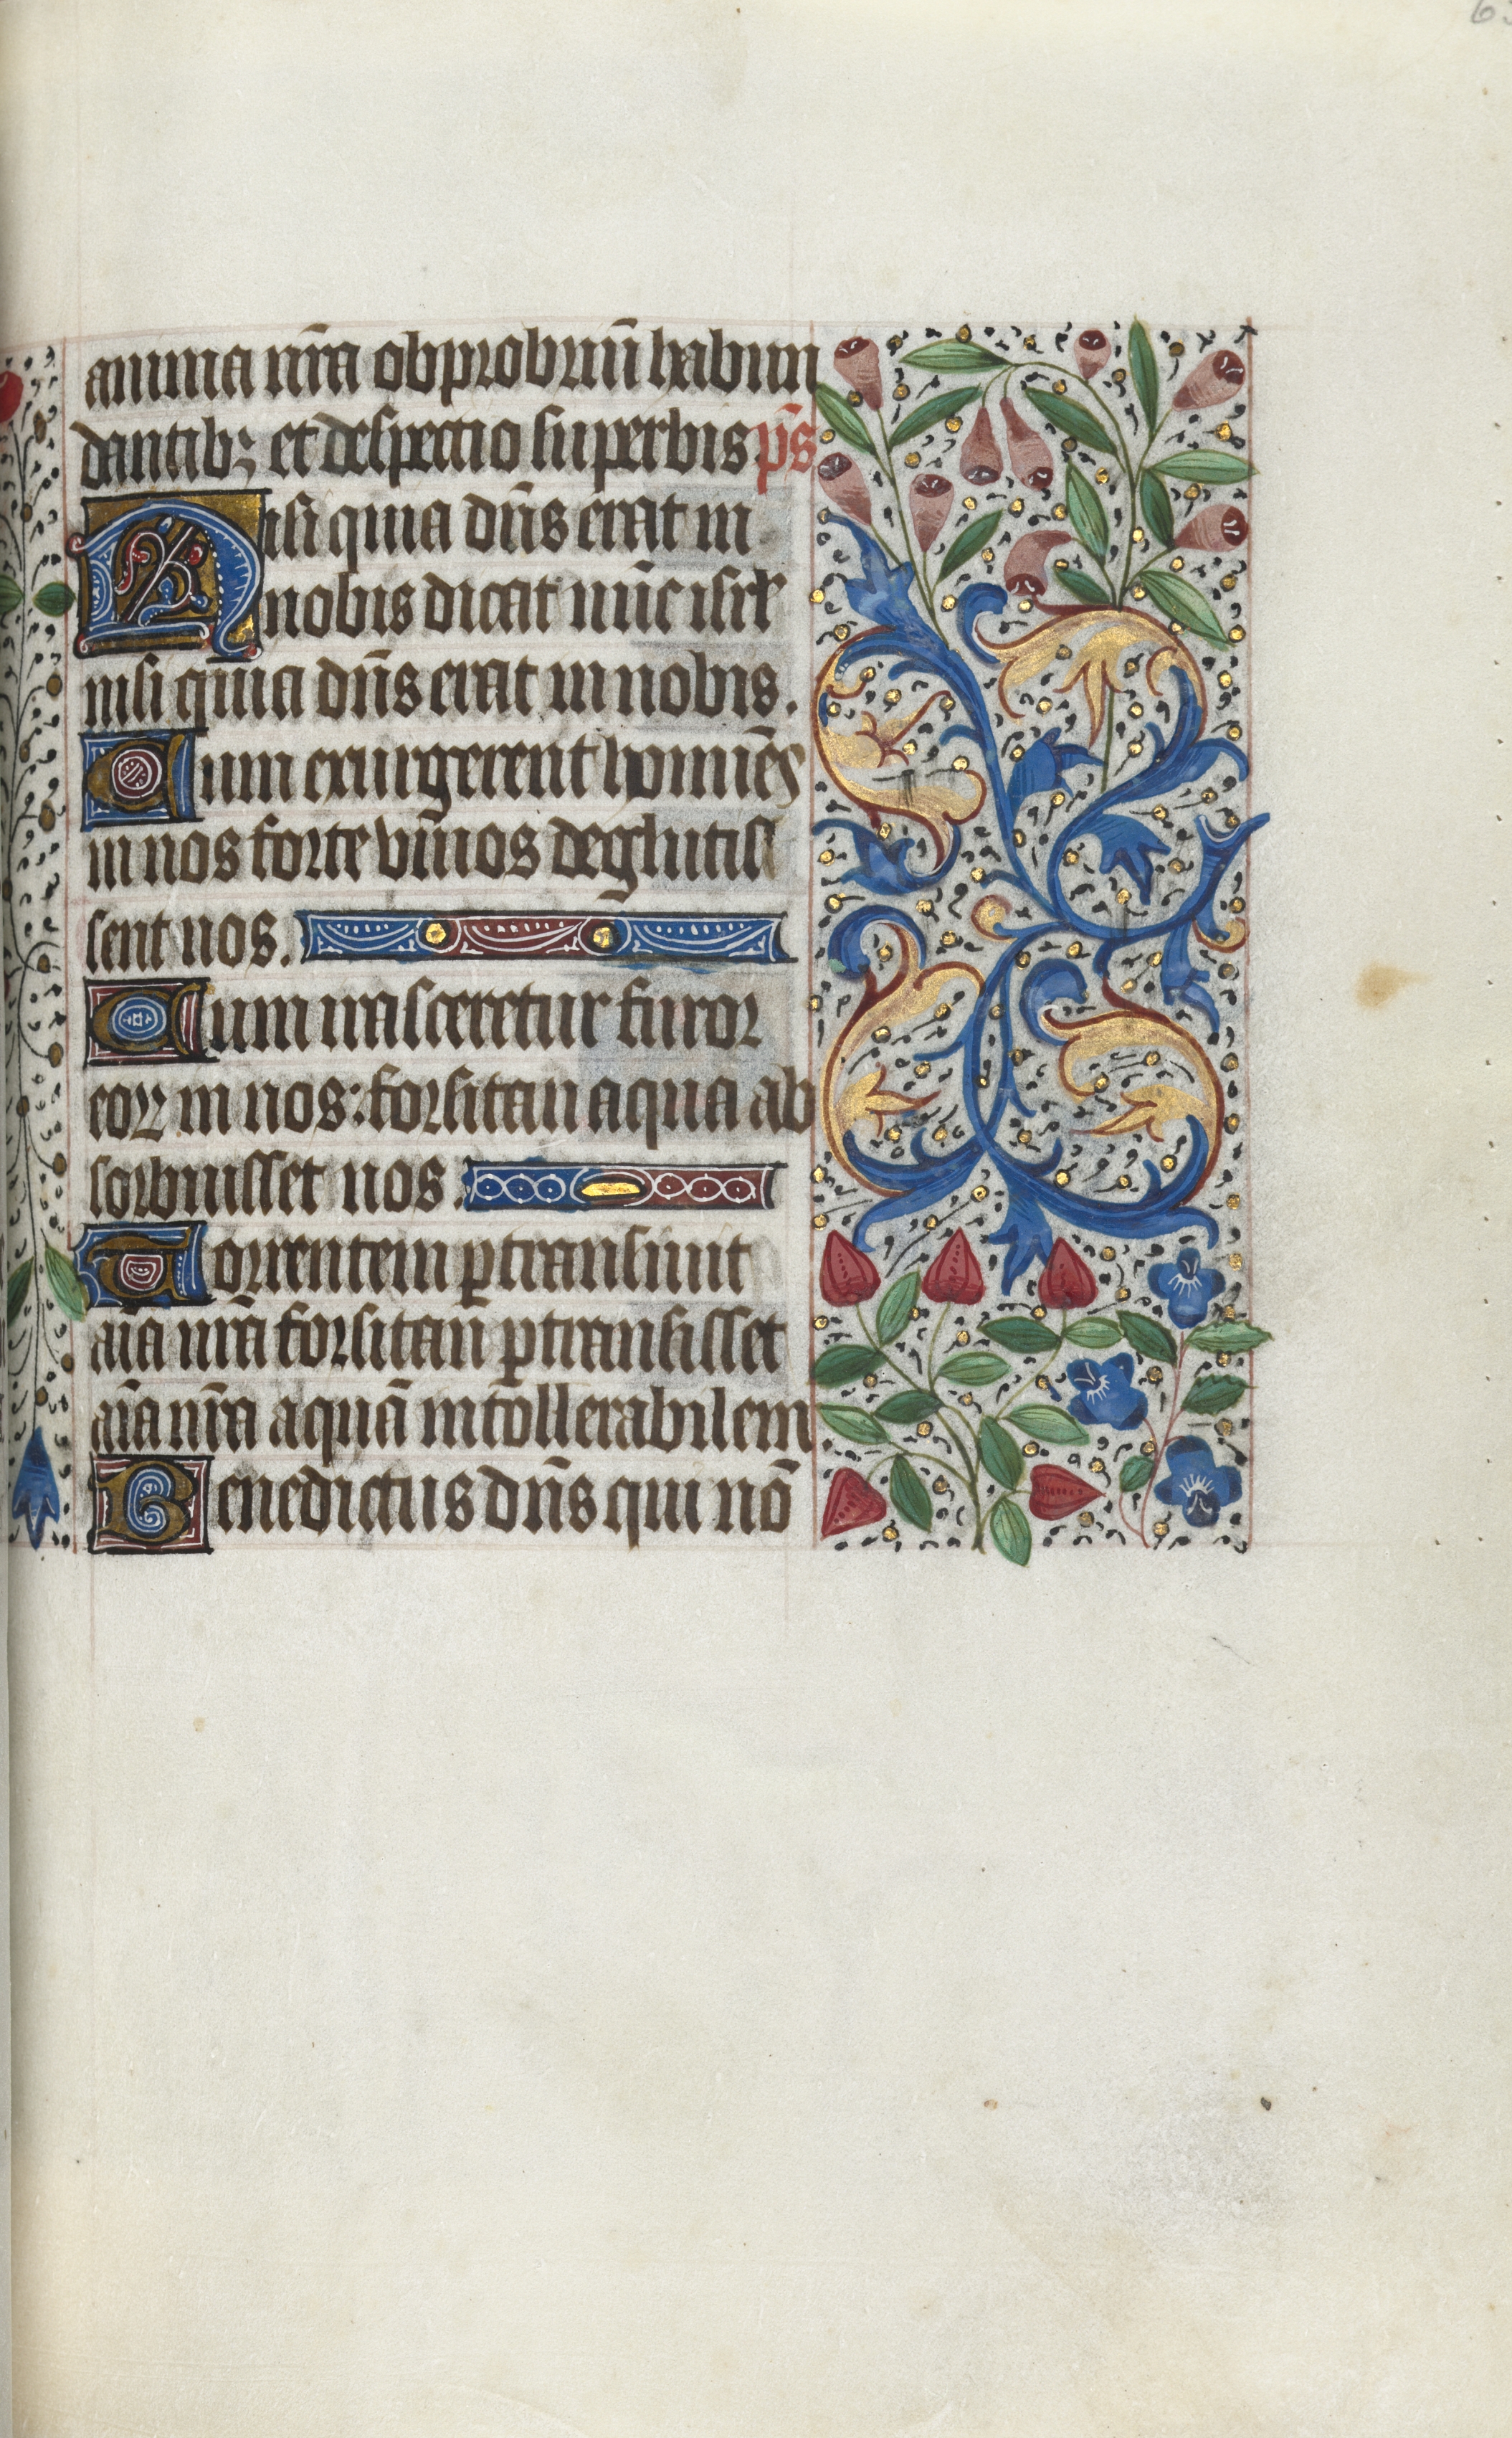 63
anima nr̄a obprobriū̄ habun
dantibꝫ et despectio superbis p̄s
Nisi quia dn̄s erat in
nobis dicat nūc isrł
nisi quia dn̄s erat in nobis.
Cum exurgerent homīēs
in nos forte vīuos deglutis
sent nos.
Cum irasceretur furor
eoꝝ in nos: forsitan aqua ab
sorbuisset nos.
Torrentem ꝑtransiuit
aīa nr̄a forsitan̄ ꝑtransisset
aīa nr̄a aquā intollerabilem.
Benedictus dn̄s qui nō